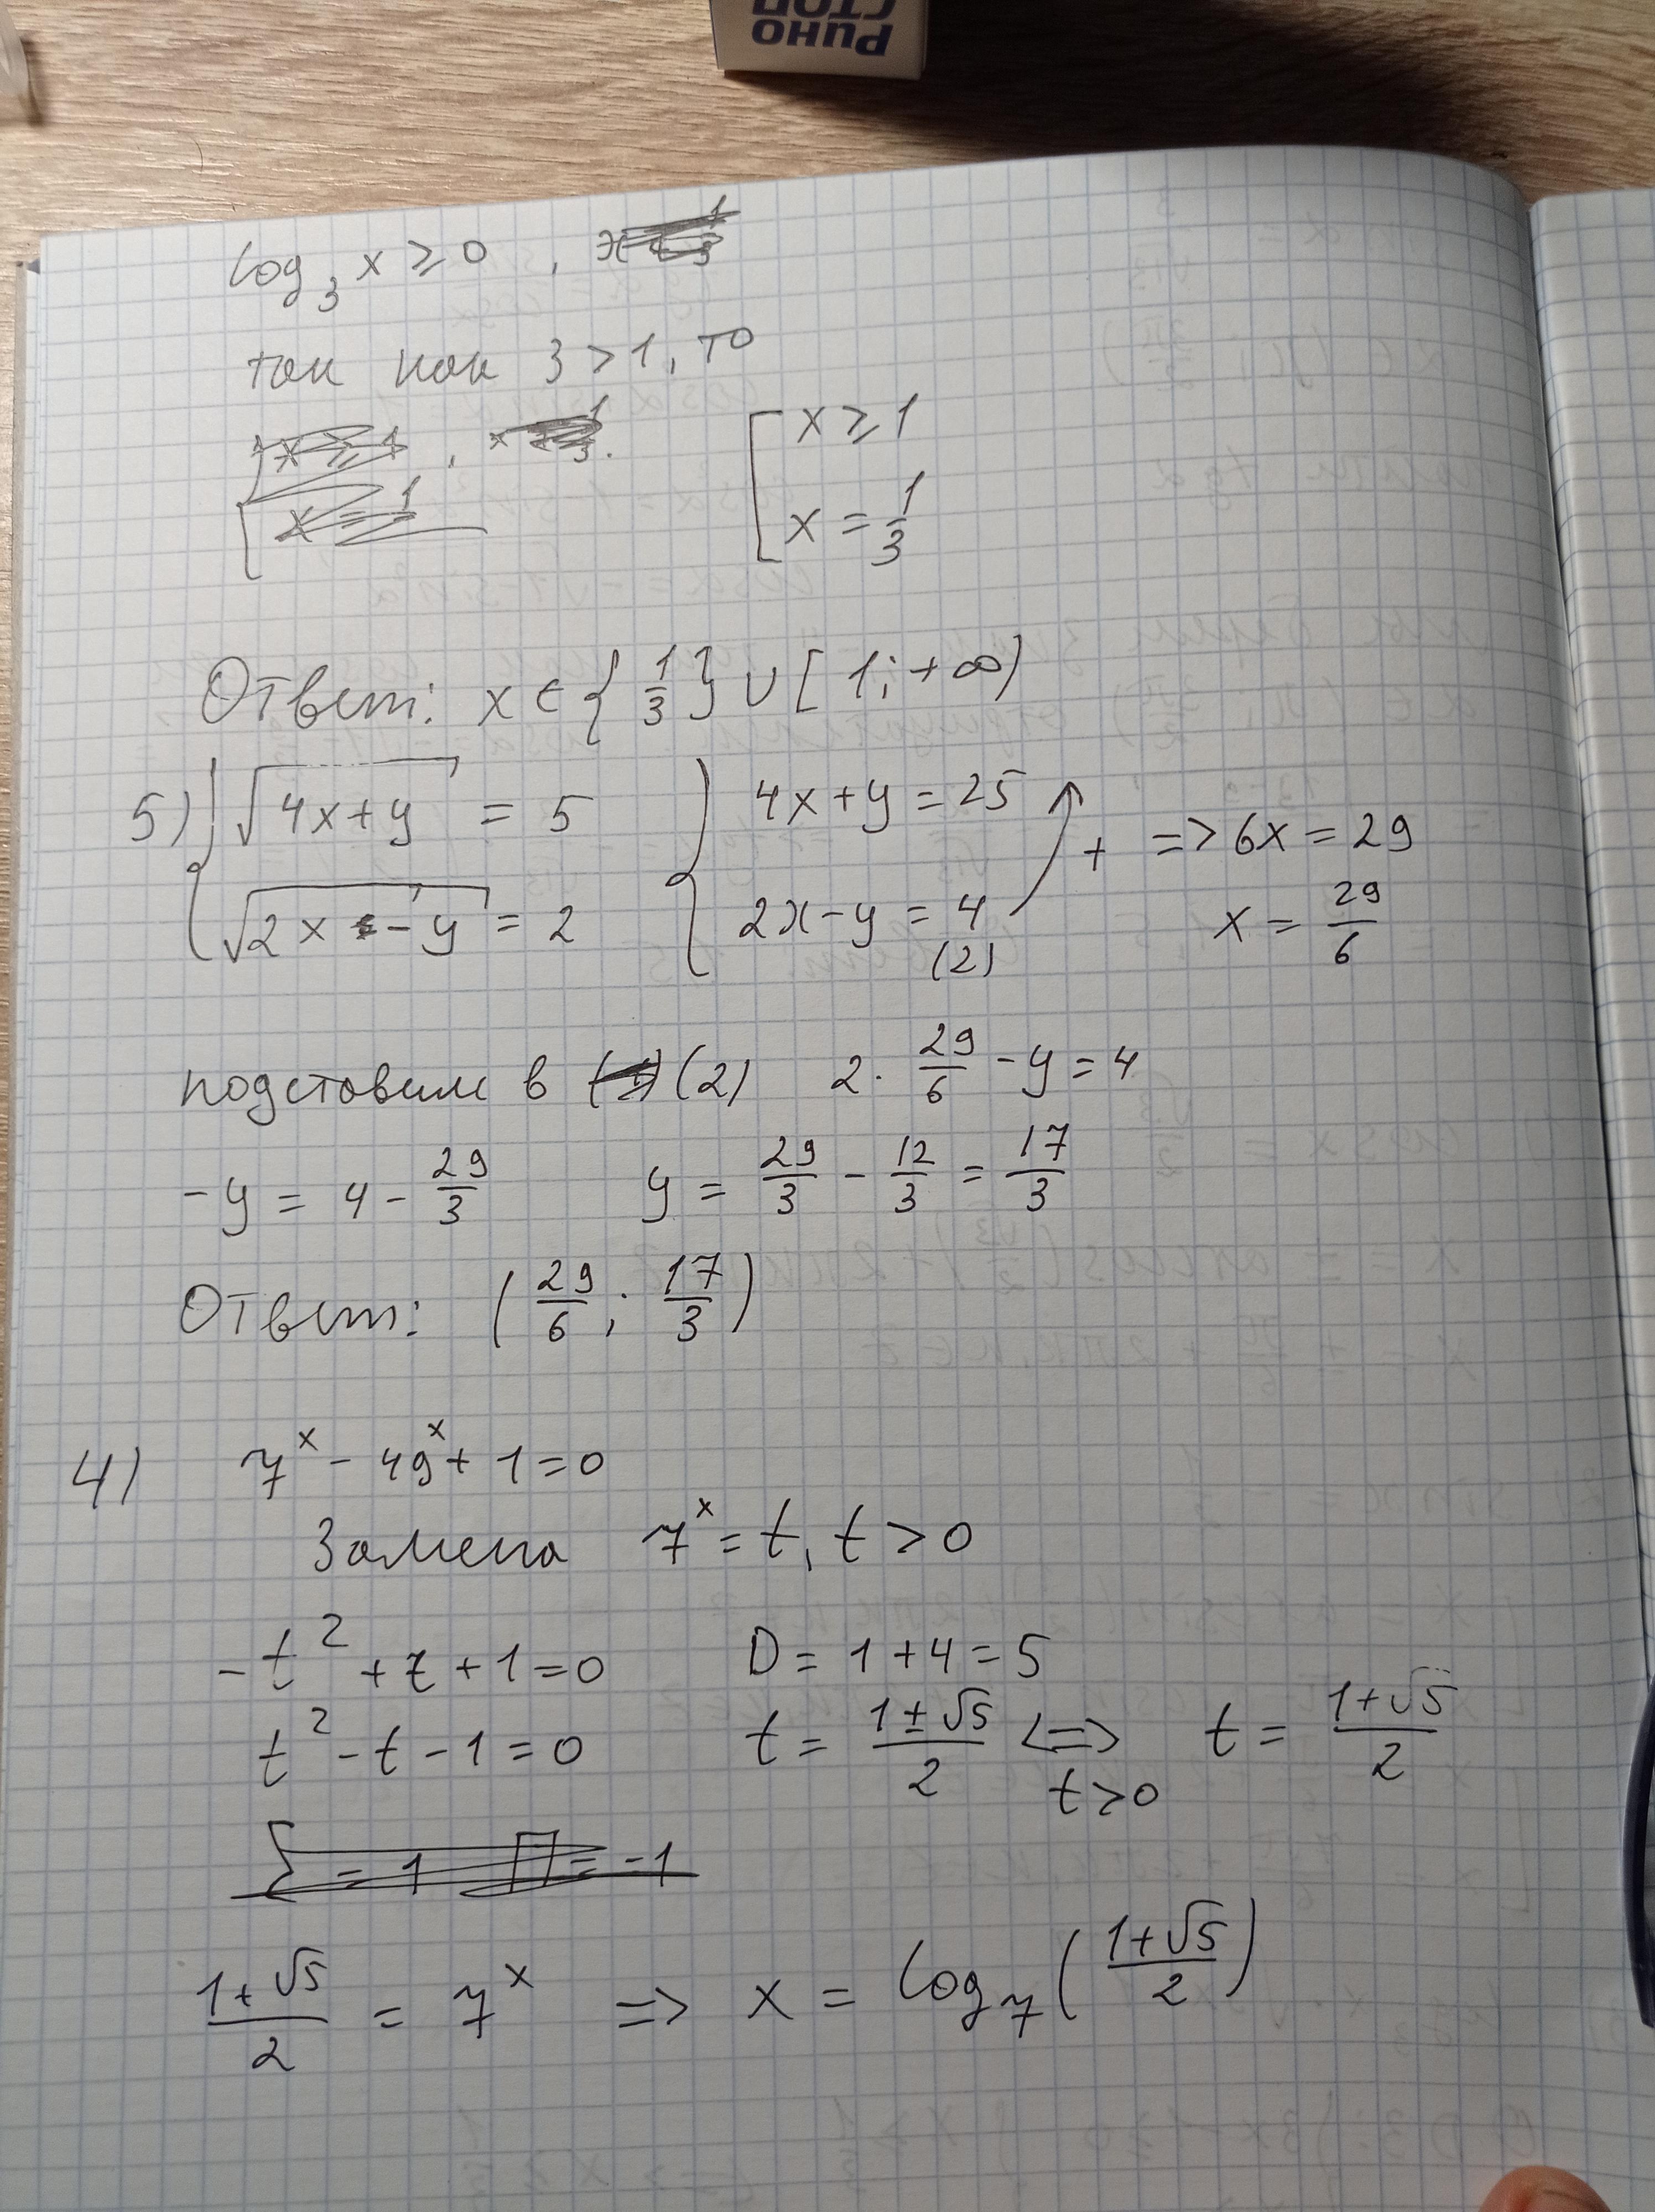 РИНО
СТОП
log₃ x ≥ 0,
так как 3 > 1, то
[ x ≥ 1
x = 1/3
Ответ: x ∈ { 1/3 } ∪ [ 1; +∞)
5) { √(4x+y) = 5 { 4x+y = 25 + => 6x = 29
√(2x - y) = 2 2x-y = 4 (2) x = 29/6
подставим в (2) 2 · 29/6 - y = 4
-y = 4 - 29/3 y = 29/3 - 12/3 = 17/3
Ответ: ( 29/6 ; 17/3 )
4) 7^x - 49^x + 1 = 0
Замена 7^x = t, t > 0
-t² + t + 1 = 0 D = 1 + 4 = 5
t² - t - 1 = 0 t = (1 ± √5)/2 <=> t>0 t = (1+√5)/2
Σ = 1 Π = -1
(1+√5)/2 = 7^x => x = log₇( (1+√5)/2 )